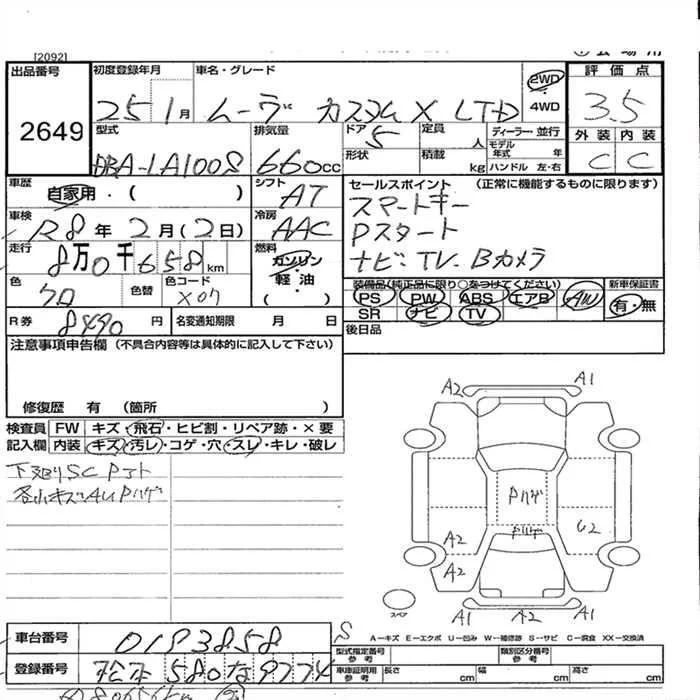 [2092]
出品番号
2649
初度登録年月
25 1月
車名・グレード
ムーヴ カスタム X LTD
2WD
・
4WD
評価点
3.5
外装 内装
C C
型式
DBA-LA100S
排気量
660cc
ドア 5
形状
定員 人
積載 kg
ディーラー・並行
モデル年式 年
ハンドル 左・右
車歴
自家用・( )
シフト
AT
車検
R8年2月(2日)
冷房
AAC
走行
8万0千658km
燃料
ガソリン
軽油
・( )
色
クロ
色替
色コード
X07
R券 8490円
名変通知期限 月 日
セールスポイント (正常に機能するものに限ります)
スマートキー
Pスタート
ナビ・TV・Bカメラ
装備品(純正品に限り○をつけてください)
PS PW ABS エアB AW
SR ナビ TV
新車保証書
有・無
後日品
注意事項申告欄(不具合内容等は具体的に記入して下さい)
修復歴 有 (箇所 )
検査員記入欄
FW キズ・飛石・ヒビ割・リペア跡・×要
内装 キズ・汚レ・コゲ・穴・スレ・キレ・破レ
下廻りSC Pコト
各小キズAU Pハゲ
A2 A1
Pハゲ
Pハゲ
A2
U2
A2
スペア
A1 A2 A1
S
A－キズ E－エクボ U－凹み W－補修跡 S－サビ C－腐食 XX－交換済
車台番号
0183858
登録番号
松本 580 な 9774
型式指定番号
参考
類別区分番号
参考
車庫証明用
参考
長さ cm 幅 cm 高さ cm